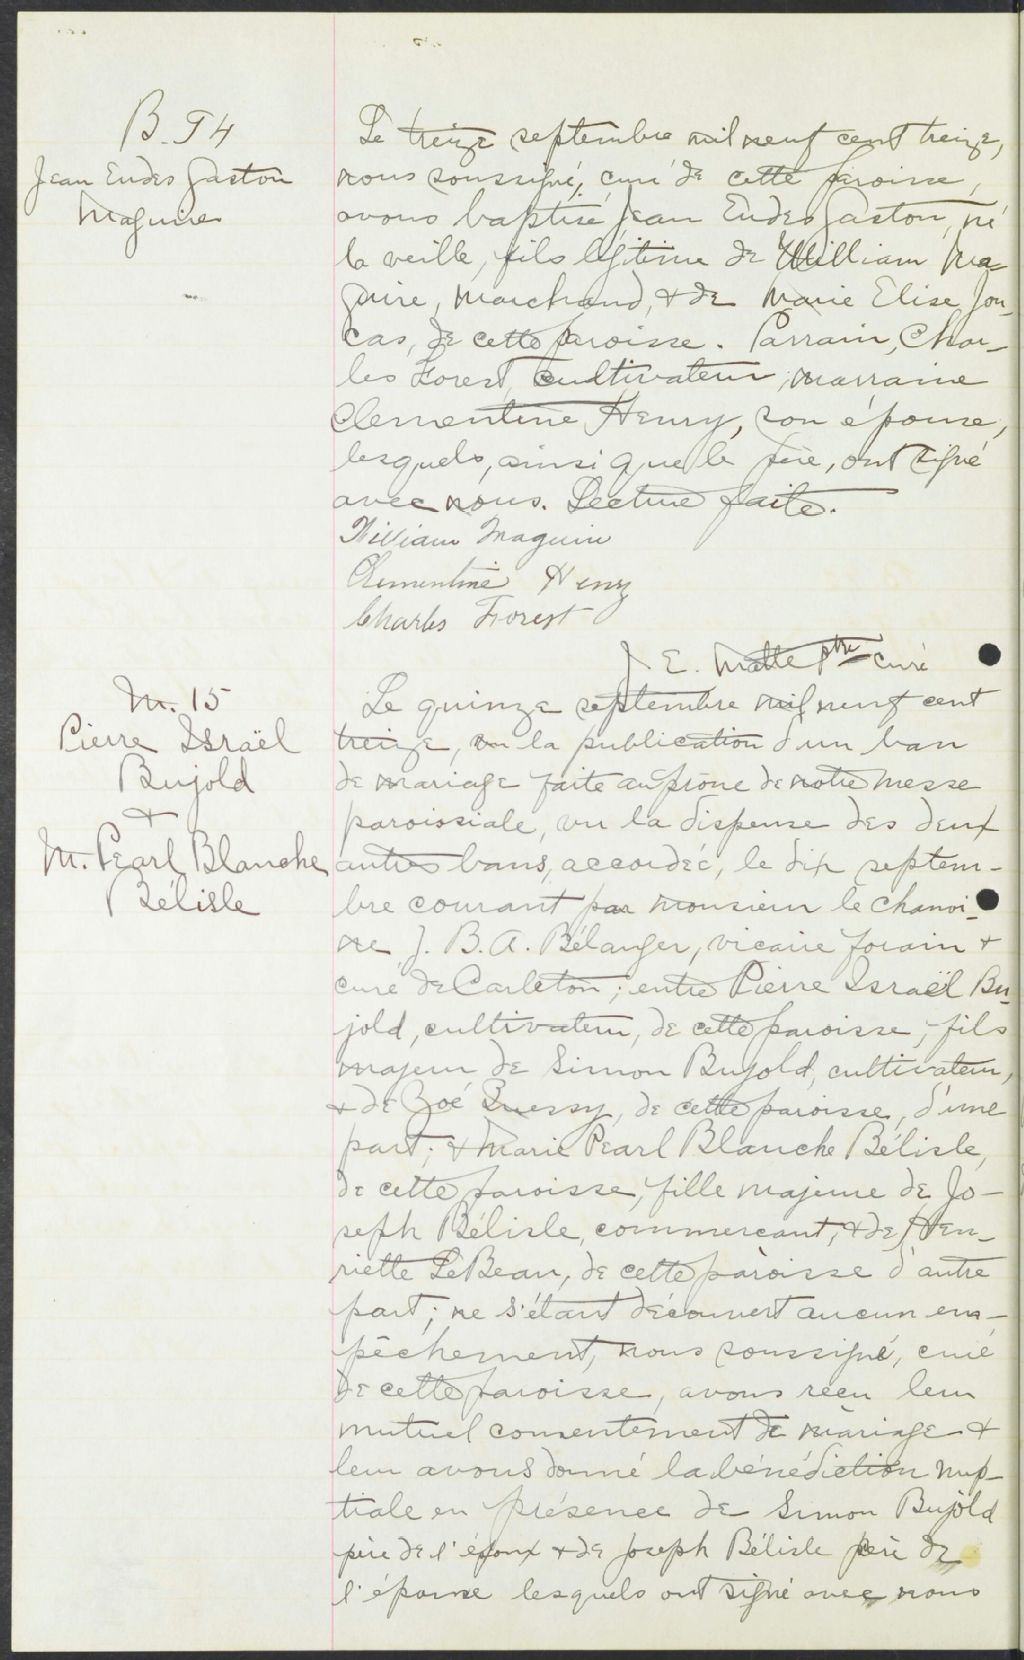 B. 94
Jean Eudes Gaston
Maguire
Le treize septembre mil neuf cent treize,
nous soussigné, curé de cette paroisse,
avons baptisé Jean Eudes Gaston, né
la veille, fils légitime de William Ma-
guire, marchand, & de Marie Elise Jon-
cas, de cette paroisse. Parrain, Char-
les Forest, cultivateur, marraine
Clementine Henry, son épouse,
lesquels, ainsi que le père, ont signé
avec nous. Lecture faite.
William Maguire
Clementine Henry
Charles Forest
J. E. Matte ptre curé
M. 15
Pierre Israël
Bujold
&
M. Pearl Blanche
Bélisle
Le quinze septembre mil neuf cent
treize, vu la publication d'un ban
de mariage faite au prône de notre messe
paroissiale, vu la dispense des deux
autres bans, accordée, le dix septem-
bre courant par monsieur le chanoi-
ne J. B. A. Bélanger, vicaire forain &
curé de Carleton; entre Pierre Israël Bu-
jold, cultivateur, de cette paroisse, fils
majeur de Simon Bujold, cultivateur,
& de Zoé Quessy, de cette paroisse, d'une
part; & Marie Pearl Blanche Bélisle,
de cette paroisse, fille majeure de Jo-
seph Bélisle, commercant, & de Hen-
riette LeBeau, de cette paroisse d'autre
part; ne s'étant découvert aucun em-
pêchement, nous soussigné, curé
de cette paroisse, avons recu leur
mutuel consentement de mariage &
leur avons donné la bénédiction nup-
tiale en présence de Simon Bujold
père de l'époux & de Joseph Bélisle père de
l'épouse lesquels ont signé avec nous